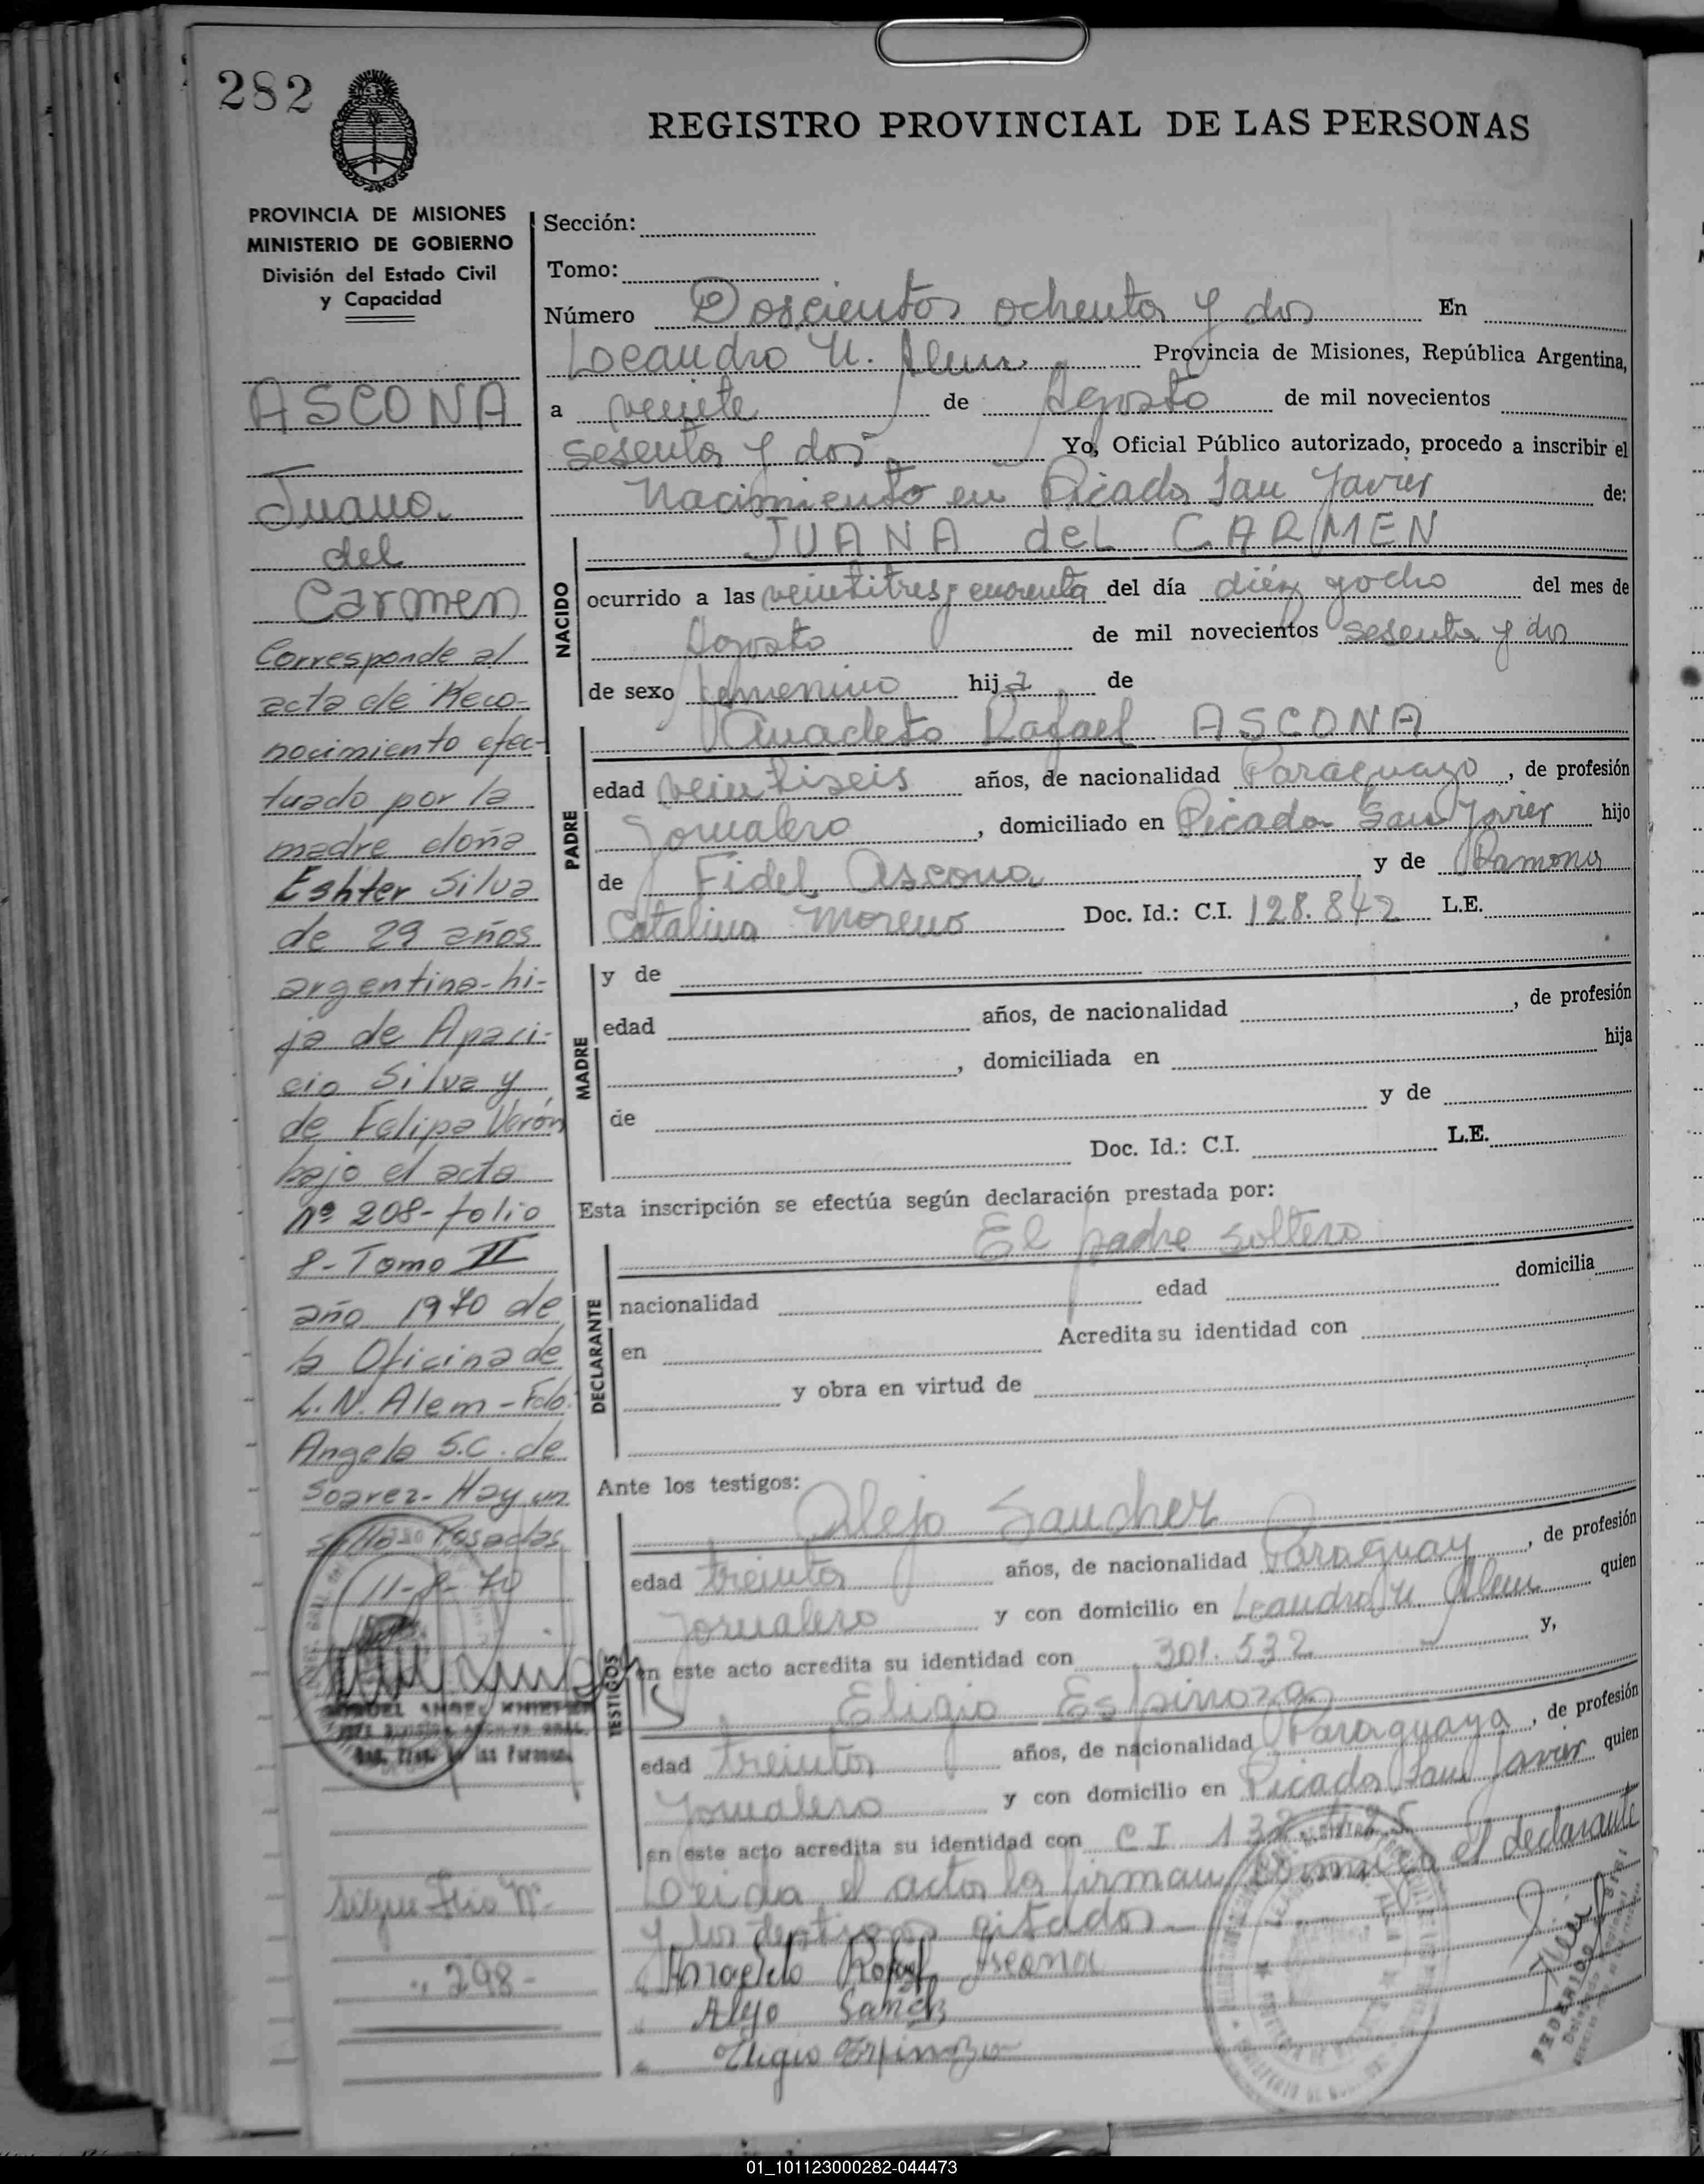 282
REGISTRO PROVINCIAL DE LAS PERSONAS
PROVINCIA DE MISIONES
MINISTERIO DE GOBIERNO
División del Estado Civil
y Capacidad
ASCONA
Juana
del
Carmen
Corresponde al
acta de Reco-
nocimiento efec-
tuado por la
madre doña
Eshter Silva
de 29 años
argentina-hi-
ja de Apari-
cio Silva y
de Felipa Verón
bajo el acta
nº 208-folio
8-Tomo II
año 1970 de
la Oficina de
L.N. Alem - Fdo.
Angela S.C. de
Soarez- Hay un
sello Posadas
11-8-70
Sigue Folio Nº
298-
Sección:
Tomo:
Número Doscientos ochenta y dos En
Leandro N. Alem Provincia de Misiones, República Argentina,
a veinte de Agosto de mil novecientos
sesenta y dos Yo, Oficial Público autorizado, procedo a inscribir el
Nacimiento en Picada San Javier de:
JUANA del CARMEN
NACIDO
ocurrido a las veintitres y cuarenta del día diez y ocho del mes de
Agosto de mil novecientos sesenta y dos
de sexo femenino hija de
Anacleto Rafael ASCONA
PADRE
edad veintiseis años, de nacionalidad Paraguayo, de profesión
Jornalero, domiciliado en Picada San Javier hijo
de Fidel Ascona y de Ramona
Catalina Moreno Doc. Id.: C.I. 128.842 L.E.
MADRE
y de
edad años, de nacionalidad , de profesión
, domiciliada en hija
de y de
Doc. Id.: C.I. L.E.
Esta inscripción se efectúa según declaración prestada por:
El padre soltero
DECLARANTE
nacionalidad edad domicilia
en Acredita su identidad con
y obra en virtud de
Ante los testigos:
Alejo Sanchez
TESTIGOS
edad treinta años, de nacionalidad Paraguay, de profesión
Jornalero y con domicilio en Leandro N. Alem quien
en este acto acredita su identidad con 301.532 y,
Eligio Espinoza
edad treinta años, de nacionalidad Paraguaya, de profesión
Jornalero y con domicilio en Picada San Javier quien
en este acto acredita su identidad con C I
Leida el acta la firman conmigo el declarante
y los testigos citados.-
Anacleto Rafael Ascona
Alejo Sanchez
Eligio Espinoza
01_101123000282-044473